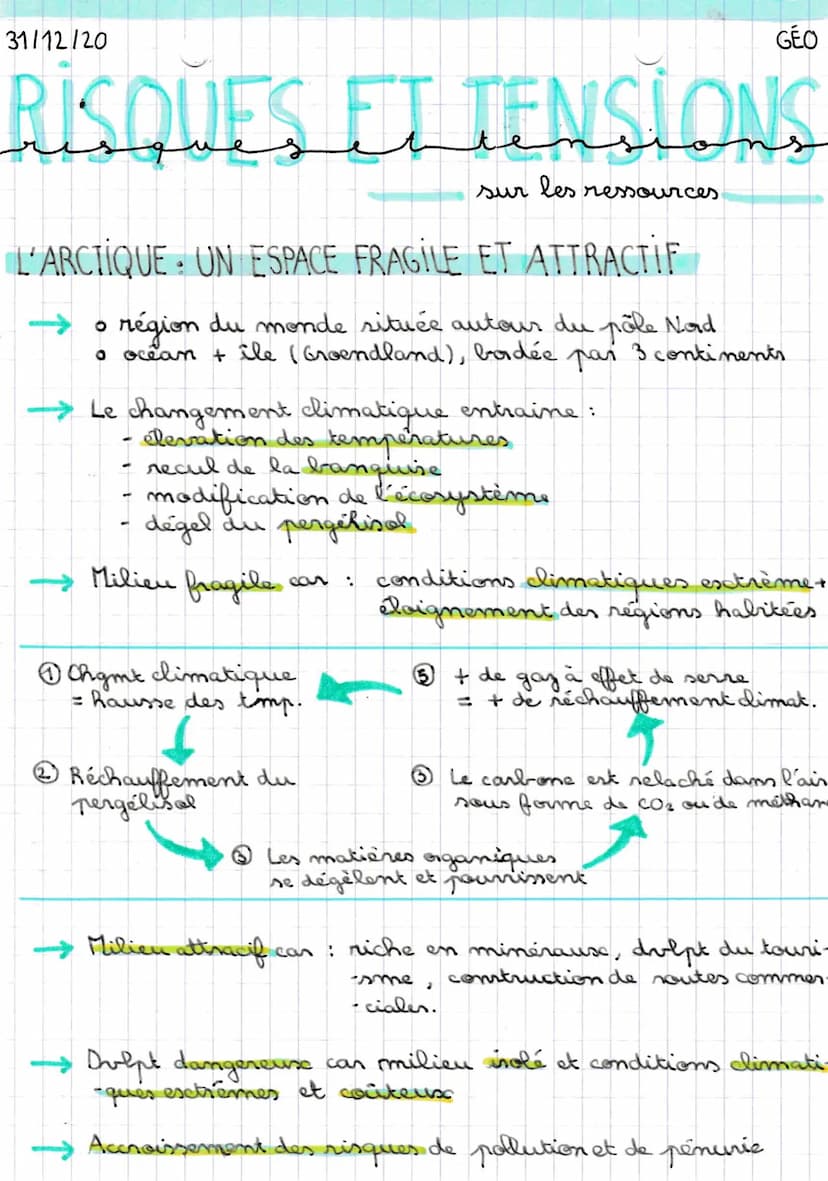 31/12/20
GÉO
RISQUES ET TENSIONS
risques et tensions
sur les ressources
L'ARCTIQUE : UN ESPACE FRAGILE ET ATTRACTIF
→ o région du monde située autour du pôle Nord
o océan + île (Groendland), bordée par 3 continents
→ Le changement climatique entraine :
- élevation des températures
- recul de la banquise
- modification de l'écosystème
- dégel du pergélisol
→ Milieu fragile car : conditions climatiques extrême +
éloignement des régions habitées
① Chgmt climatique
= hausse des tmp.
⑤ + de gaz à effet de serre
= + de réchauffement climat.
② Réchauffement du
pergélisol
③ Le carbone est relaché dans l'air
sous forme de CO₂ ou de méthan
③ Les matières organiques
se dégèlent et pourrissent
→ Milieu attracif car : riche en minéraux, dvlpt du touri-
-sme, construction de routes commer-
-ciales.
→ Dvlpt dangereux car milieu isolé et conditions climati-
-ques extrêmes et coûteux
→ Accroissement des risques de pollution et de pénurie